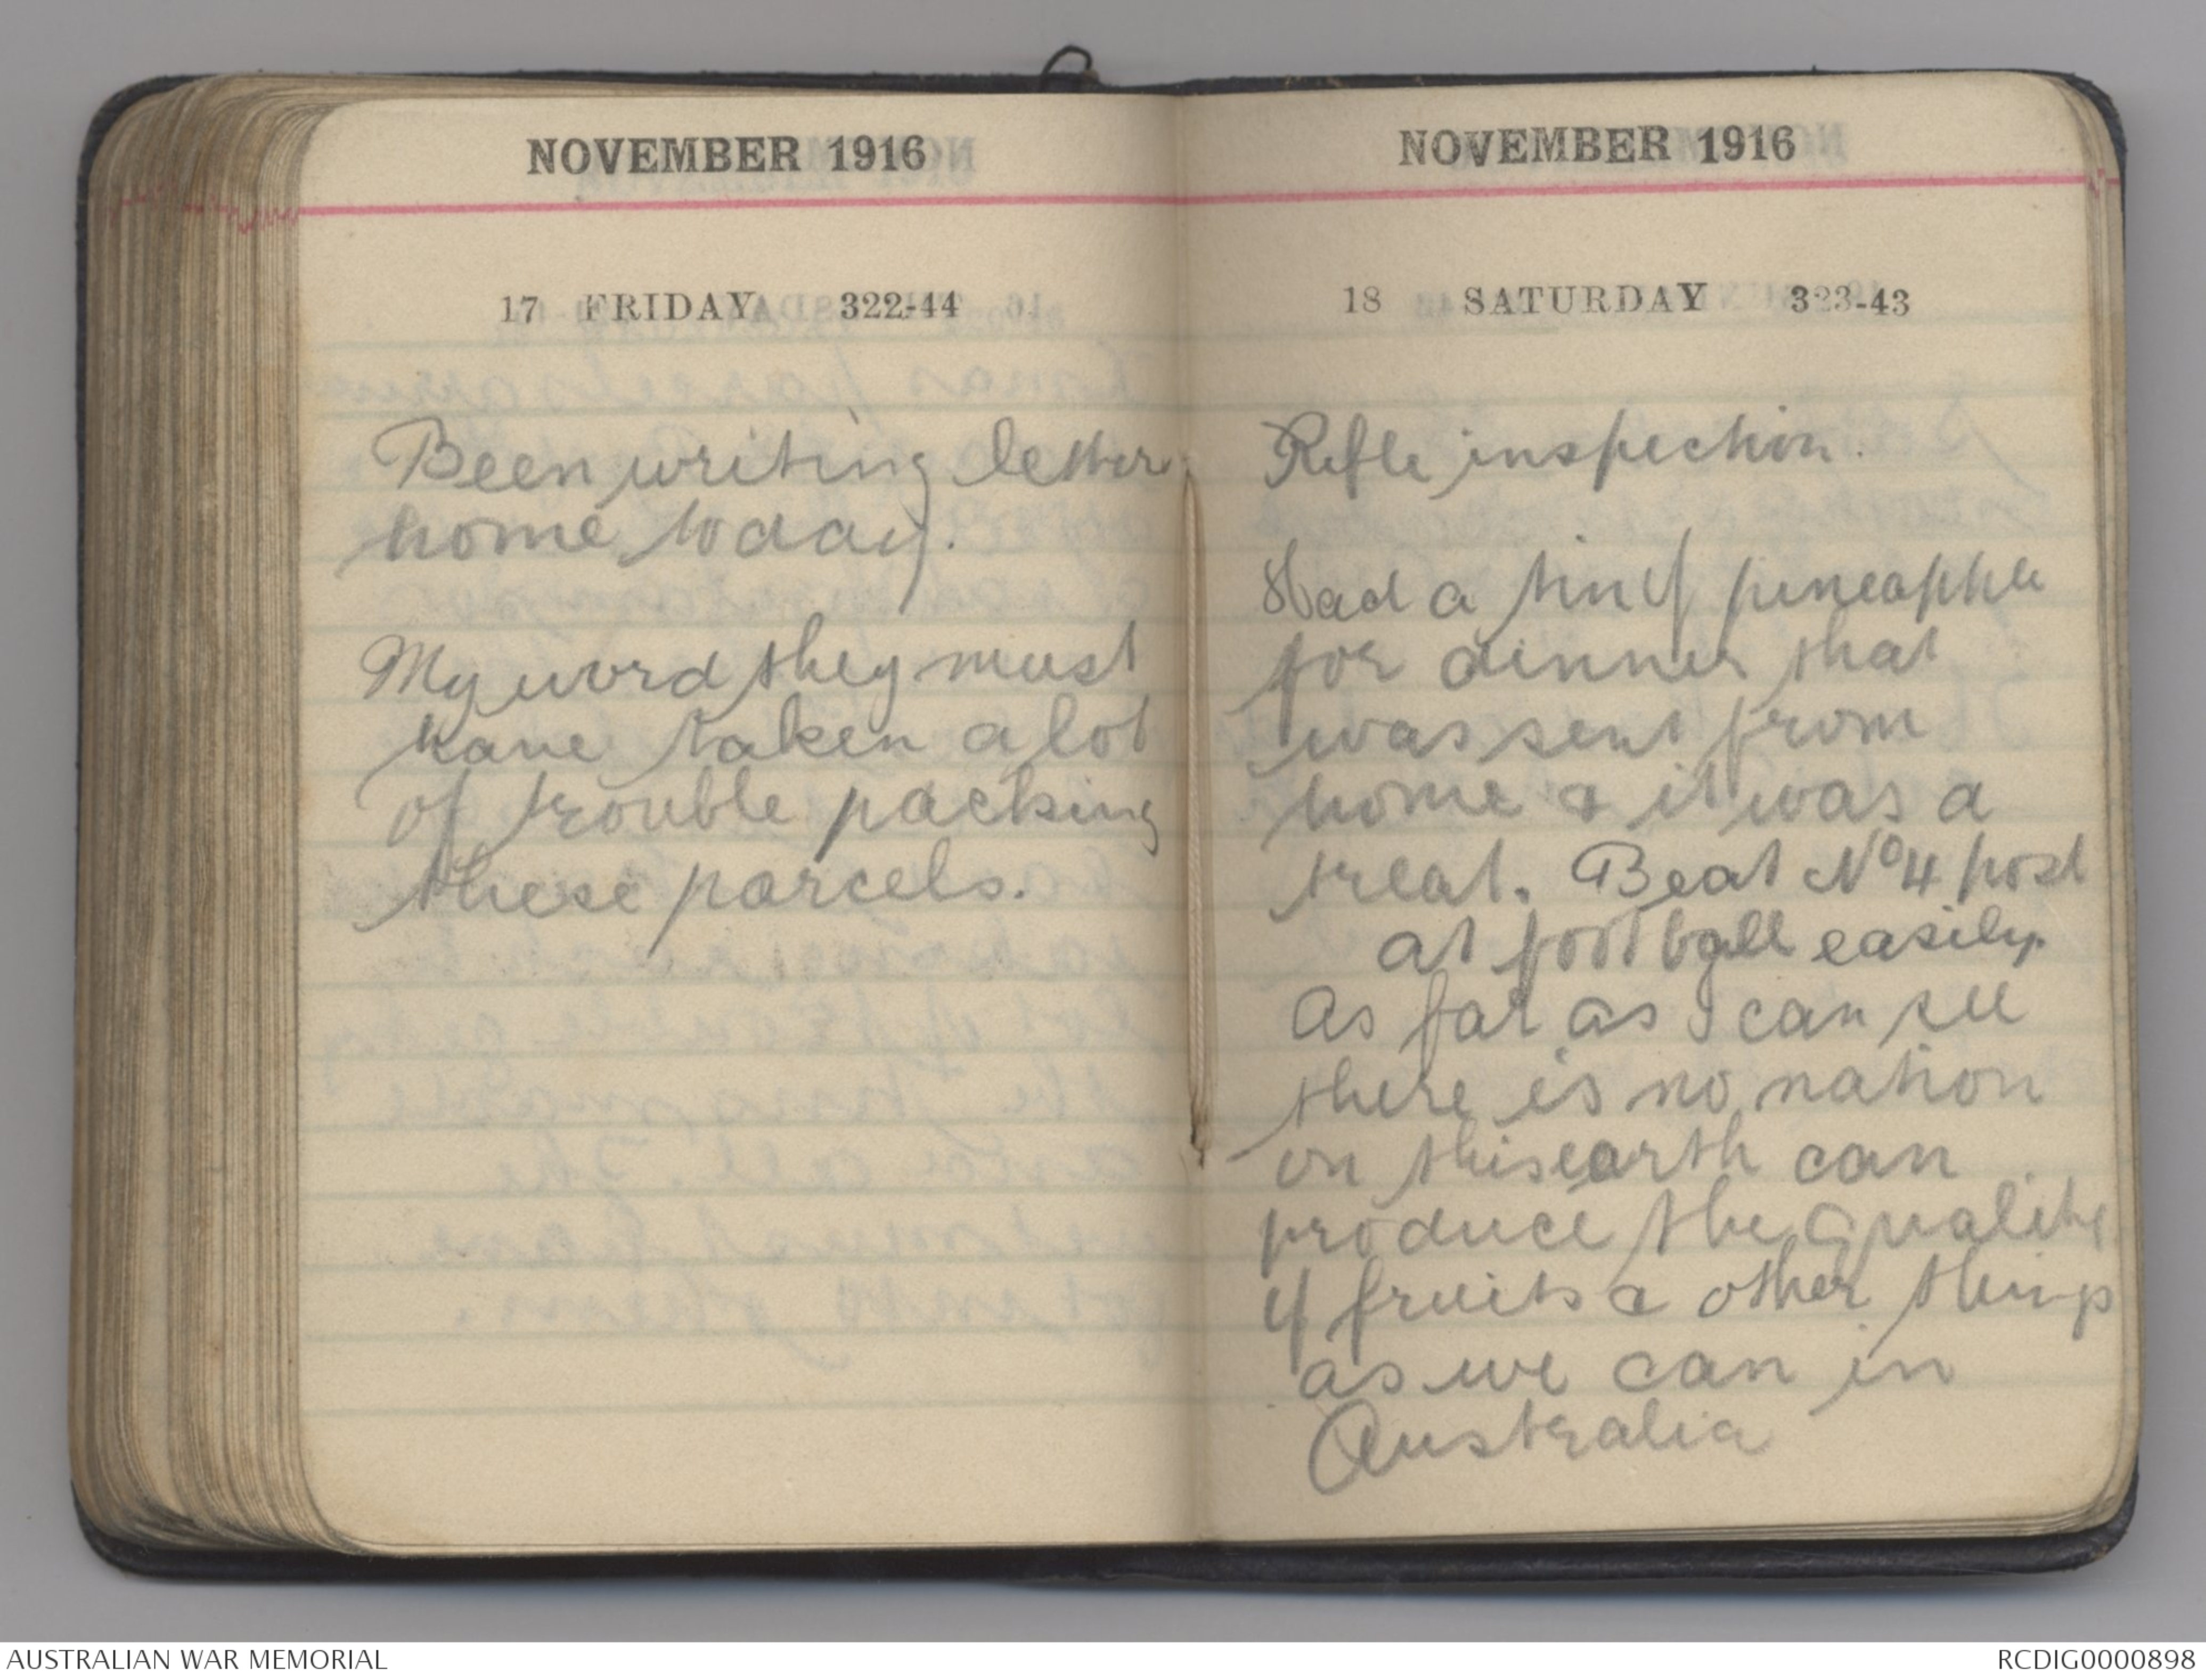 NOVEMBER 1916
17 FRIDAY 322-44
Been writing letter
home today.
My word they must
have taken a lot
of trouble packing
these parcels.
NOVEMBER 1916
18 SATURDAY 323-43
Rifle inspection.
Had a tin of pineapple
for dinner that
was sent from
home & it was a
treat. Beat No 4 post
at football easily.
As far as I can see
there is no nation
on this earth can
produce the quality
of fruits & other things
as we can in
Australia
AUSTRALIAN WAR MEMORIAL
RCDIG0000898